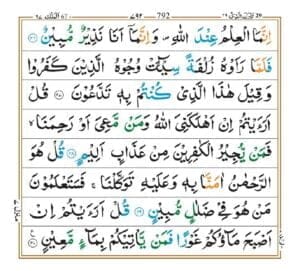 ٦٧ الملك ٧٩٢ 792 تبرك الذي ٢٩
اِنَّمَا الْعِلْمُ عِنْدَ اللّٰهِ ۪ وَاِنَّمَاۤ اَنَا نَذِيْرٌ مُّبِيْنٌ ﴿۲۶﴾
فَلَمَّا رَاَوْهُ زُلْفَةً سِيْٓـَٔتْ وُجُوْهُ الَّذِيْنَ كَفَرُوْا
وَقِيْلَ هٰذَا الَّذِيْ كُنْتُمْ بِهٖ تَدَّعُوْنَ ﴿۲۷﴾ قُلْ
اَرَءَيْتُمْ اِنْ اَهْلَكَنِيَ اللّٰهُ وَمَنْ مَّعِيَ اَوْ رَحِمَنَا ۙ
فَمَنْ يُّجِيْرُ الْكٰفِرِيْنَ مِنْ عَذَابٍ اَلِيْمٍ ﴿۲۸﴾ قُلْ هُوَ
الرَّحْمٰنُ اٰمَنَّا بِهٖ وَعَلَيْهِ تَوَكَّلْنَا ۚ فَسَتَعْلَمُوْنَ
مَنْ هُوَ فِيْ ضَلٰلٍ مُّبِيْنٍ ﴿۲۹﴾ قُلْ اَرَءَيْتُمْ اِنْ
اَصْبَحَ مَآؤُكُمْ غَوْرًا فَمَنْ يَّاْتِيْكُمْ بِمَآءٍ مَّعِيْنٍ ﴿۳۰﴾